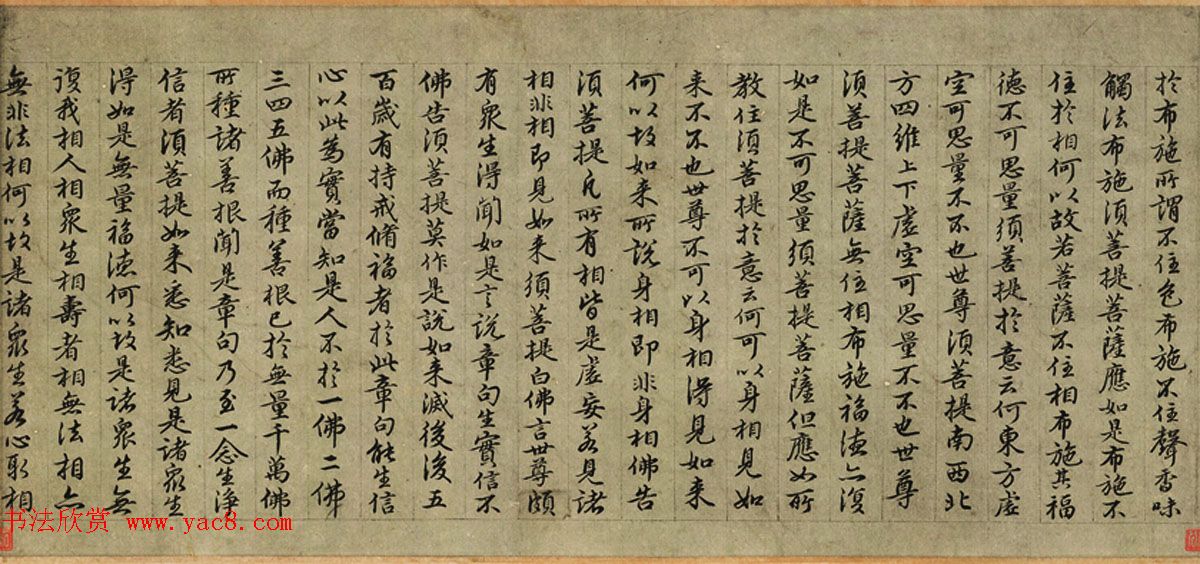 於布施所謂不住色布施不住聲香味
觸法布施須菩提菩薩應如是布施不
住於相何以故若菩薩不住相布施其福
德不可思量須菩提於意云何東方虛
空可思量不不也世尊須菩提南西北
方四維上下虛空可思量不不也世尊
須菩提菩薩無住相布施福德亦復
如是不可思量須菩提菩薩但應如所
教住須菩提於意云何可以身相見如
來不不也世尊不可以身相得見如來
何以故如來所說身相即非身相佛告
須菩提凡所有相皆是虛妄若見諸
相非相即見如來須菩提白佛言世尊頗
有眾生得聞如是言說章句生實信不
佛告須菩提莫作是說如來滅後後五
百歲有持戒脩福者於此章句能生信
心以此為實當知是人不於一佛二佛
三四五佛而種善根已於無量千萬佛
所種諸善根聞是章句乃至一念生淨
信者須菩提如來悉知悉見是諸眾生
得如是無量福德何以故是諸眾生無
復我相人相眾生相壽者相無法相亦
無非法相何以故是諸眾生若心取相
书法欣赏 www.yac8.com